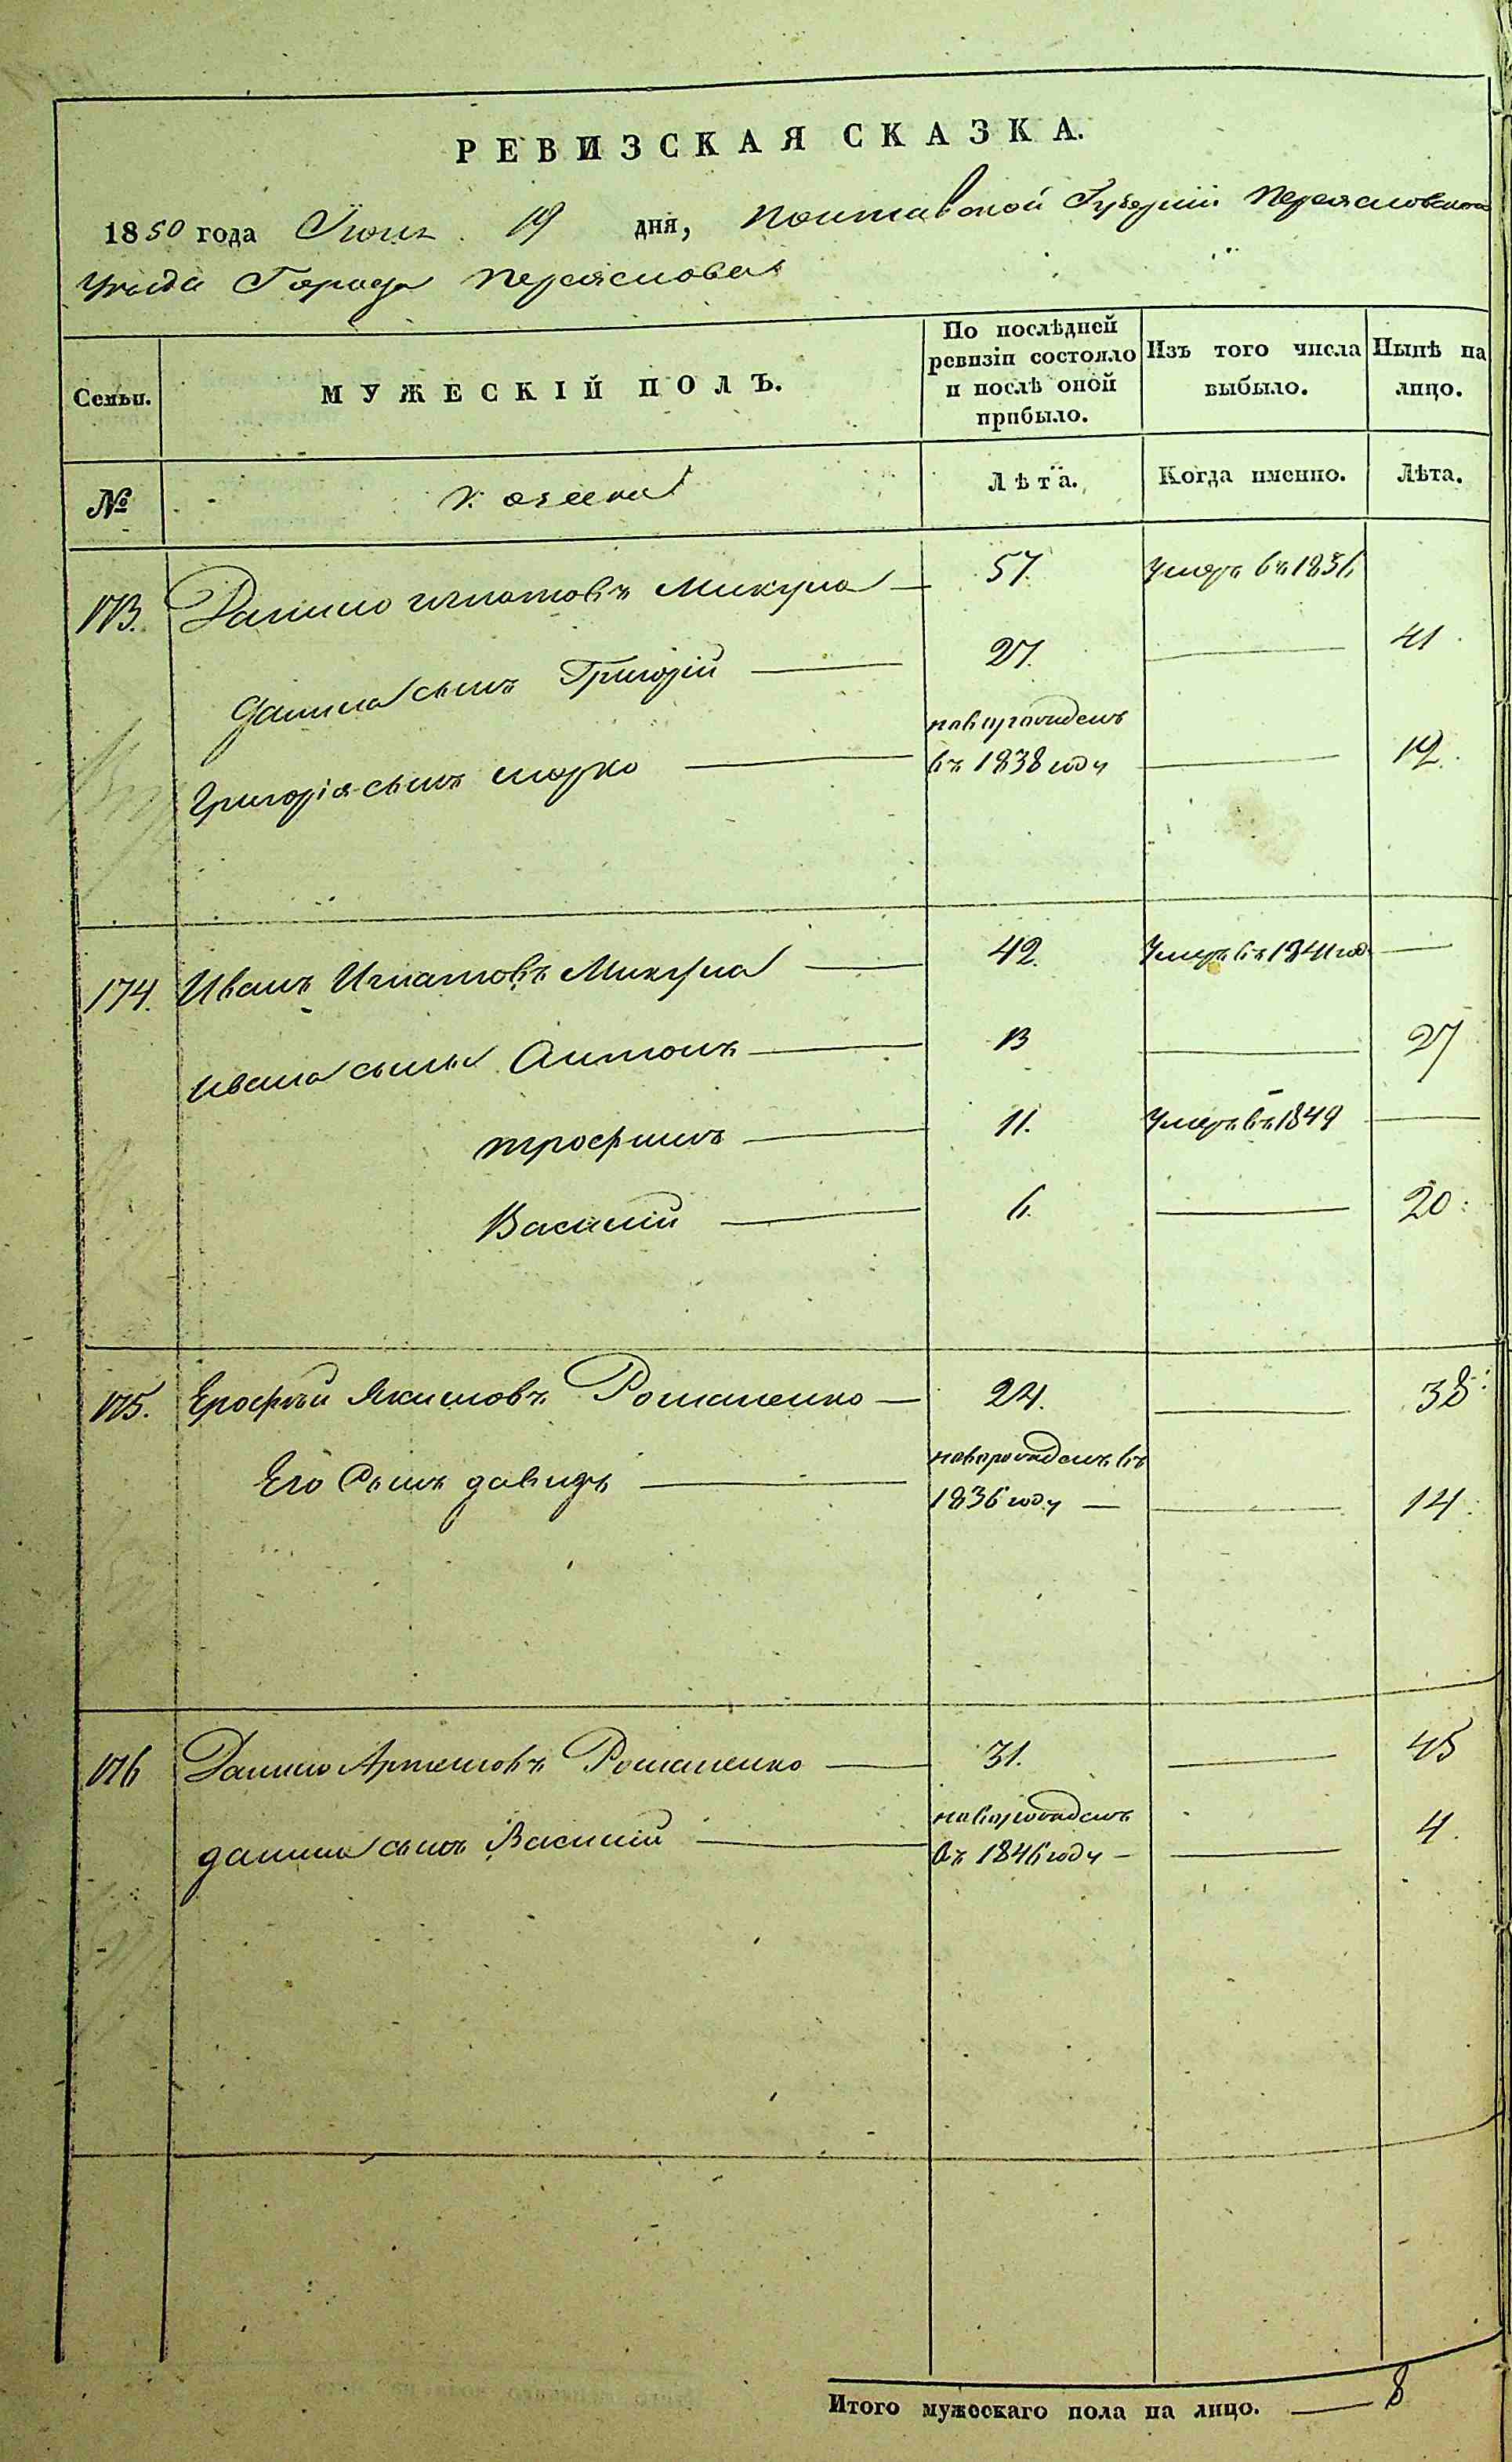 РЕВИЗСКАЯ СКАЗКА.
1850 года Іюня 19 дня, Полтавской Губерніи Переясловскаго
Уѣзда Города Переяслова
Семьи. МУЖЕСКІЙ ПОЛЪ. По послѣдней ревизіи состояло и послѣ оной прибыло. Изъ того числа выбыло. Нынѣ на лицо.
№ Лѣта. Когда именно. Лѣта.
173. Данило Игнатовъ Микула 57. Умеръ въ 1836
Данила сынъ Григорій 27. 41
новорожденъ
Григорія сынъ Марко въ 1838 году 12.
174. Иванъ Игнатовъ Микула 42. Умеръ въ 1841 год
Ивана сынья Антонъ 13 27
Трофимъ 11. Умеръ въ 1849
Василій 6. 20
175. Ерофѣй Якимовъ Романенко 24. 38
новорожденъ въ
Его Сынъ Давидъ 1836 году 14
176 Данило Артемовъ Романенко 31. 45
новорожденъ
Данила сынъ Василій въ 1846 году 4.
Итого мужескаго пола на лицо. 8